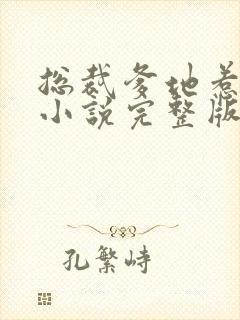 总裁爹地惹
小说完整版
孔繁峙